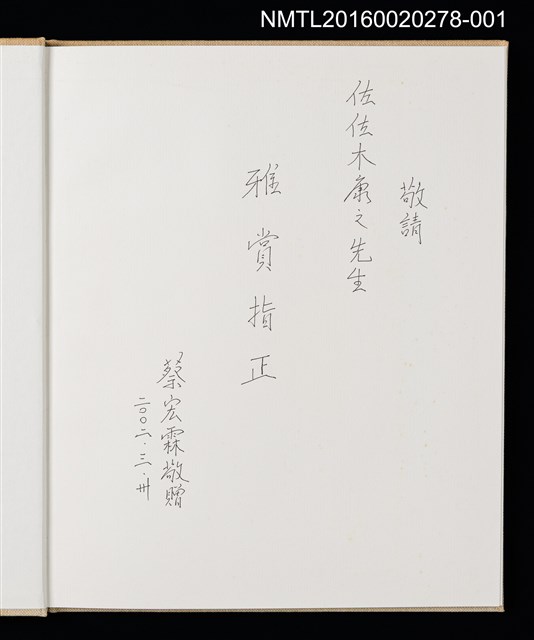 NMTL20160020278-001
敬請
佐佐木康之先生
雅賞指正
蔡宏霖敬贈
二〇〇二.三.卅